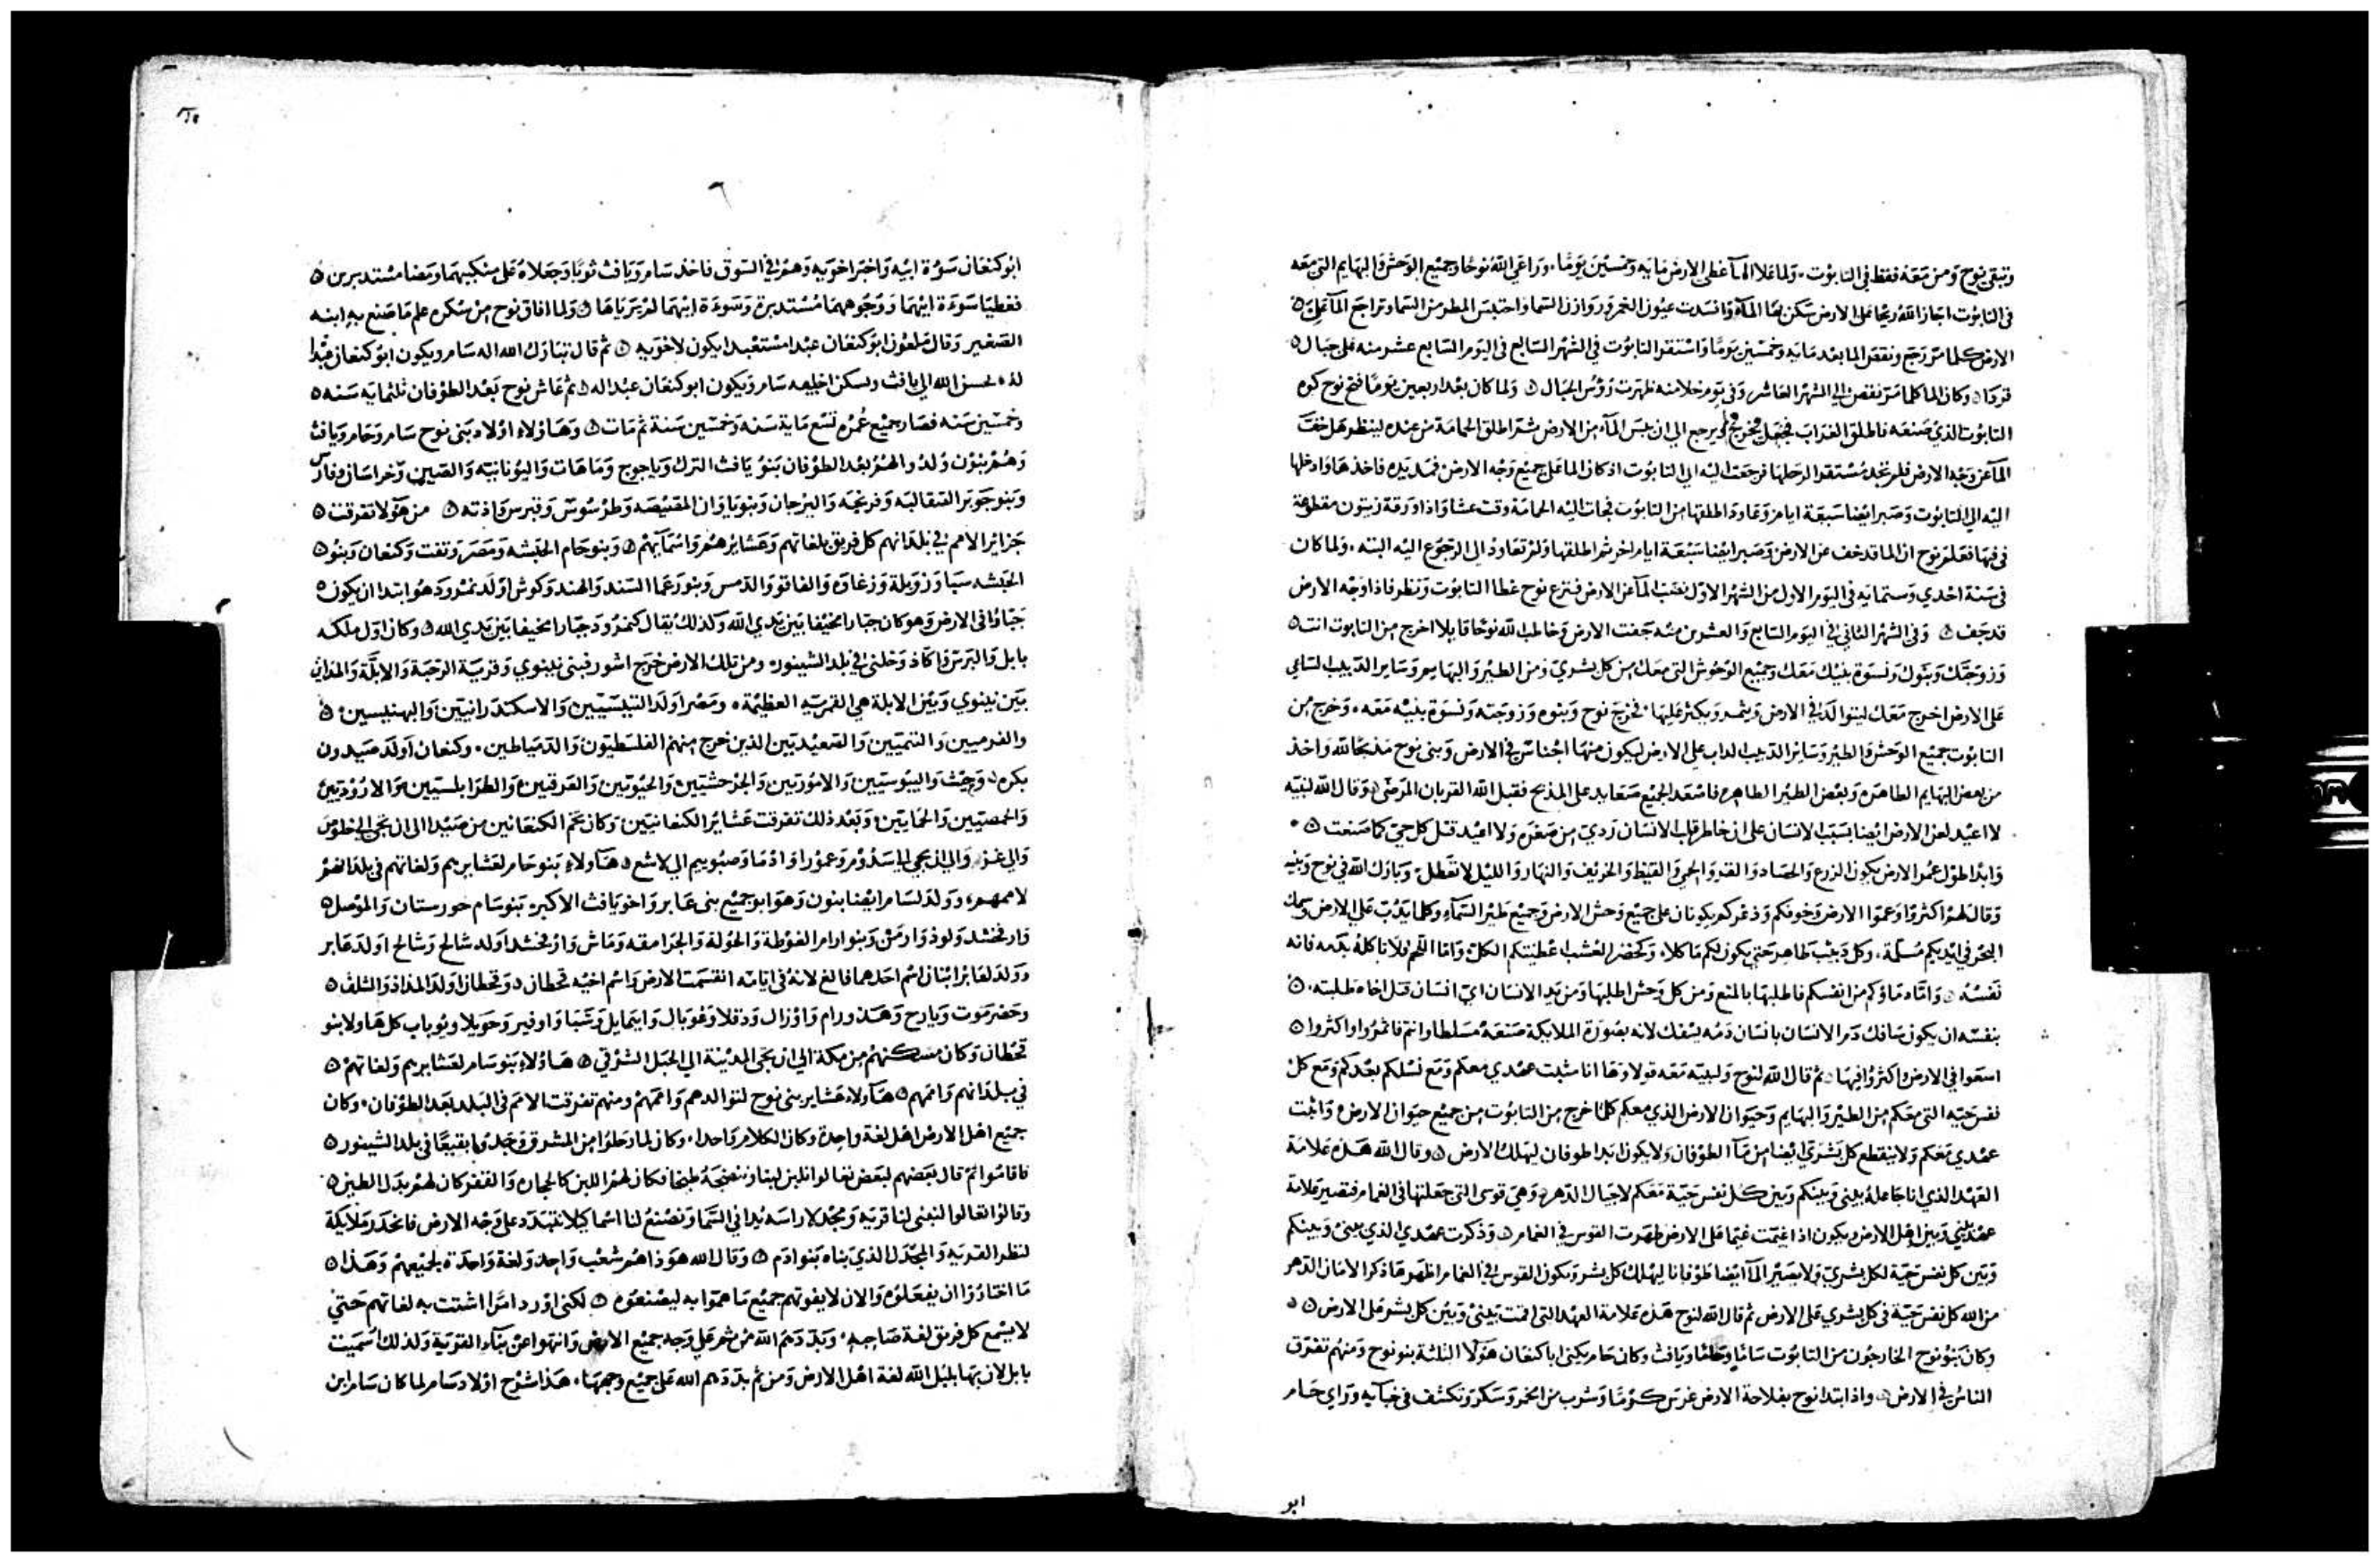 وتبقى نوح ومن معه فقط في التابوت ولما علا الما على الارض مايه وخمسين يوما وراعى الله نوحا وجميع الوحش والبهايم التي معه
في التابوت اجاز الله ريحا على الارض سكن بها الماء وانسدت عيون الغمر وروازن السما واحتبس المطر من السما وتراجع الما عن
الارض كلما مر رجع ونقص الما بعد مايه وخمسين يوما واستقر التابوت في الشهر السابع في اليوم السابع عشر منه على جبال
قردا وكان الما كلما مر نقص الى الشهر العاشر وفي يوم خلا منه ظهرت رؤس الجبال ولما كان بعد اربعين يوما فتح نوح كوه
التابوت الذي صنعه فاطلق الغداب فجعل يخرج ويرجع الى ان يبس الماء من الارض ثم اطلق الحمامة من عنده لينظر هل خف
الما عن وجه الارض فلم تجد مستقرا لرجلها فرجعت اليه الى التابوت اذ كان الما على جميع وجه الارض فمد يده فاخذها وادخلها
اليه الى التابوت وصبر ايضا سبعة ايام وعاود اطلقها من التابوت فجات اليه الحمامة وقت عشا واذا ورقة زيتون مقطعة
في فيها فعلم نوح ان الما قد خف عن الارض وصبر ايضا سبعة ايام اخر ثم اطلقها ولم تعاود الى الرجوع اليه البته ولما كان
في سنة احدي وستمايه في اليوم الاول من الشهر الاول نضب الما عن الارض فنزع نوح غطا التابوت ونظر فاذا وجه الارض
قد جف وفي الشهر الثاني في اليوم السابع والعشرين منه جفت الارض وخاطب الله نوحا قايلا اخرج من التابوت انت
وزوجتك وبنوك ونسوة بنيك معك وجميع الوحوش التي معك من كل بشري ومن الطير والبهايم وساير الدبيب الساعي
على الارض اخرج معك ليتوالد في الارض ويثمر ويكثر عليها فخرج نوح وبنوه وزوجته ونسوة بنيه معه وخرج من
التابوت جميع الوحش والطير وساير الدبيب الداب على الارض ليكون منها اجناس في الارض وبنى نوح مذبحا لله واخذ
من بعض البهايم الطاهره وبعض الطير الطاهر فاصعد الجميع صعايد على المذبح فقبل الله القربان المرضى وقال الله لنبيه
لا اعيد لعن الارض ايضا بسبب الانسان على ان خاطر قلب الانسان ردي من صغره ولا اعيد قتل كل حي كما صنعت
وابدا طول عمر الارض يكون الزرع والحصاد والقر والحر والقيظ والخريف والنهار والليل لا تعطل وبارك الله في نوح وبنيه
وقال لهم اكثروا وعموا الارض وخوفكم وذعركم يكونان على جميع وحش الارض وجميع طير السماء وكلما يدب على الارض وسمك
البحر في ايديكم مسلمة وكل دبيب طاهر حتى يكون لكم ماكلا وكخضر العشب عطيتكم الكل واما اللحم فلا تاكله بدمه فانه
نفسه واما دماؤكم من انفسكم فاطلبها بالمنع ومن كل وحش اطلبها ومن يد الانسان اي انسان قتل اخاه طلبته
بنفسه ان يكون سافك دم الانسان بانسان دمه يسفك لانه بصورة الملايكة صنعه مسلطا وانتم فاثمروا واكثروا
اسعوا في الارض واكثروا فيها ثم قال الله لنوح ولبنيه معه قولا وها انا مثبت عهدي معكم ومع نسلكم بعدكم ومع كل
نفس حيه التي معكم من الطير والبهايم وحيوان الارض الذي معكم كل خارج من التابوت من جميع حيوان الارض واثبت
عهدي معكم ولا ينقطع كل بشري ايضا من ماء الطوفان ولا يكون ابدا طوفان ليهلك الارض وقال الله هذه علامة
العهد الذي انا جاعله بيني وبينكم وبين كل نفس حية معكم لاجيال الدهر وهي قوسى التي جعلتها في الغمام فتصير علامة
عهد بيني وبين اهل الارض ويكون اذا غيمت غيما على الارض ظهرت القوس في الغمام وذكرت عهدي الذي بيني وبينكم
وبين كل نفس حية لكل بشري ولا يصير الما ايضا طوفانا ليهلك كل بشر وتكون القوس في الغمام اظهرها ذكرا لامان الدهر
من الله كل نفس حية في كل بشري على الارض ثم قال الله لنوح هذه علامة العهد التي اثبت بيني وبين كل بشر على الارض
وكان بنو نوح الخارجون من التابوت ساما وحاما ويافث وكان حام يكنى ابا كنعان هولا الثلثة بنو نوح ومنهم تفرق
الناس في الارض واذا ابتدا نوح بفلاحة الارض غرس كرما وشرب من الخمر وسكر وتكشف في خبايه وراى حام
ابو
٦
ابو كنعان سوءة ابيه واخبر اخويه وهم في السوق فاخذ سام ويافث ثوبا وجعلاه على منكبيهما ومضيا مستدبرين
فغطيا سوءة ابيهما ووجوههما مستدبرة وسوءة ابيهما لم يرياها ولما افاق نوح من سكره علم ما صنع به ابنه
الصغير وقال ملعون ابو كنعان عبدا مستعبدا يكون لاخويه ثم قال تبارك الله اله سام ويكون ابو كنعان عبدا
له يحسن الله الى يافث ويسكن اخبيه سام ويكون ابو كنعان عبدا له ثم عاش نوح بعد الطوفان ثلثمايه سنه
وخمسين سنه فصار جميع عمره تسع ماية سنه وخمسين سنة ثم مات وهاولاء اولاد بنى نوح سام وحام ويافث
وهم بنون ولدوا لهم بعد الطوفان بنو يافث الترك وياجوج وماهات واليونانيه والصين وخراسان وفارس
وبنو جومر الصقالبه وفرنجه والبرجان وبنو ياوان المصيصه وطرسوس وقبرس واذنه من هولا تفرقت
جزائر الامم في بلدانهم كل فريق بلغاتهم وعشايرهم واسمآيهم وبنو حام الحبشه ومصر وتفت وكنعان وبنو
الحبشه سبا وزويلة وزغاوه والفاقو والدمس وبنو رعما السند والهند وكوش اولد نمرود هو ابتدا ان يكون
جبارا في الارض وهو كان جبارا مخيفا بين يدي الله وكذلك يقال كنمرود جبارا مخيفا بين يدي الله وكان اول ملكه
بابل والبرس واكاد وخلنى في بلد الشينور ومن تلك الارض خرج اشور فبنى نينوي وقرية الرحبة والابلة والمداين
بين نينوي وبين الابلة هي القريه العظيمة ومصر اولد التينسيين والاسكندرانيين والبهنسيين
والفرميين والتنيين والصعيديين الذين خرج منهم الفلسطيون والدمياطين وكنعان اولد صيدون
بكره وحيث واليبوسيين والاموريين والجرحشيين والحيويين والعرقيين والطرابلسيين والاروديين
والحمصيين والحمايين وبعد ذلك تفرقت عشاير الكنعانيين وكان تخم الكنعانيين من صيدا الى ان تجي الى الخلوص
والى غزه والى ان تجي الى سدوم وعمورا واذما وصبوييم الى لاشع هاولاء بنو حام لعشايرهم ولغاتهم في بلدانهم
لاممهم وولد لسام ايضا بنون وهو ابو جميع بنى عابر واخو يافث الاكبر بنو سام خورستان والموصل
وارفخشد ولوذ وارمن وبنو ارام الغوطة والحولة والجرامقه وماش وارفخشد اولد شالح وشالح اولد عابر
وولد لعابر ابنان اسم احدهما فالغ لانه في ايامه انقسمت الارض واسم اخيه قحطان وقحطان اولد المذاذ والشلف
وحضرموت ويارح وهدورام واوزال ودقلا وعوبال وابيمايل وشبا واوفير وحويلا ويوباب كل هاولا بنو
قحطان وكان مسكنهم من مكة الى ان تجى المدينة الى الجبل الشرقي هاؤلاء بنو سام لعشايرهم ولغاتهم
في بلدانهم واممهم هآولاء عشاير بنى نوح لتوالدهم واممهم ومنهم تفرقت الامم في البلد بعد الطوفان وكان
جميع اهل الارض اهل لغة واحدة وكان الكلام واحدا وكان لما رحلوا من المشرق وجدوا بقيعا في بلد الشينور
فاقاموا ثم قال بعضهم لبعض تعالوا نلبن لبنا وننضجه طبخا فكان لهم اللبن كالحجاره والقفر كان لهم بدل الطين
وقالوا تعالوا لنبنى لنا قريه ومجدلا راسه يدانى السما ونصنع لنا اسما كيلا نتبدد على وجه الارض فانحدر ملايكة
لنظر القريه والمجدل الذي بناه بنو ادم وقال الله هوذا هم شعب واحد ولغة واحدة لجميعهم وهذا
ما اختاروا ان يفعلوه والان لا يفوتهم جميع ما هموا به ليصنعوه لكنى اورد امرا اشتت به لغاتهم حتى
لا يسمع كل فريق لغة صاحبه وبددهم الله من ثم على وجه جميع الارض وانتهوا عن بناء القرية ولذلك سميت
بابل لان بها بلبل الله لغة اهل الارض ومن ثم بددهم الله على جميع وجهها هذا شرح اولاد سام لما كان سام ابن